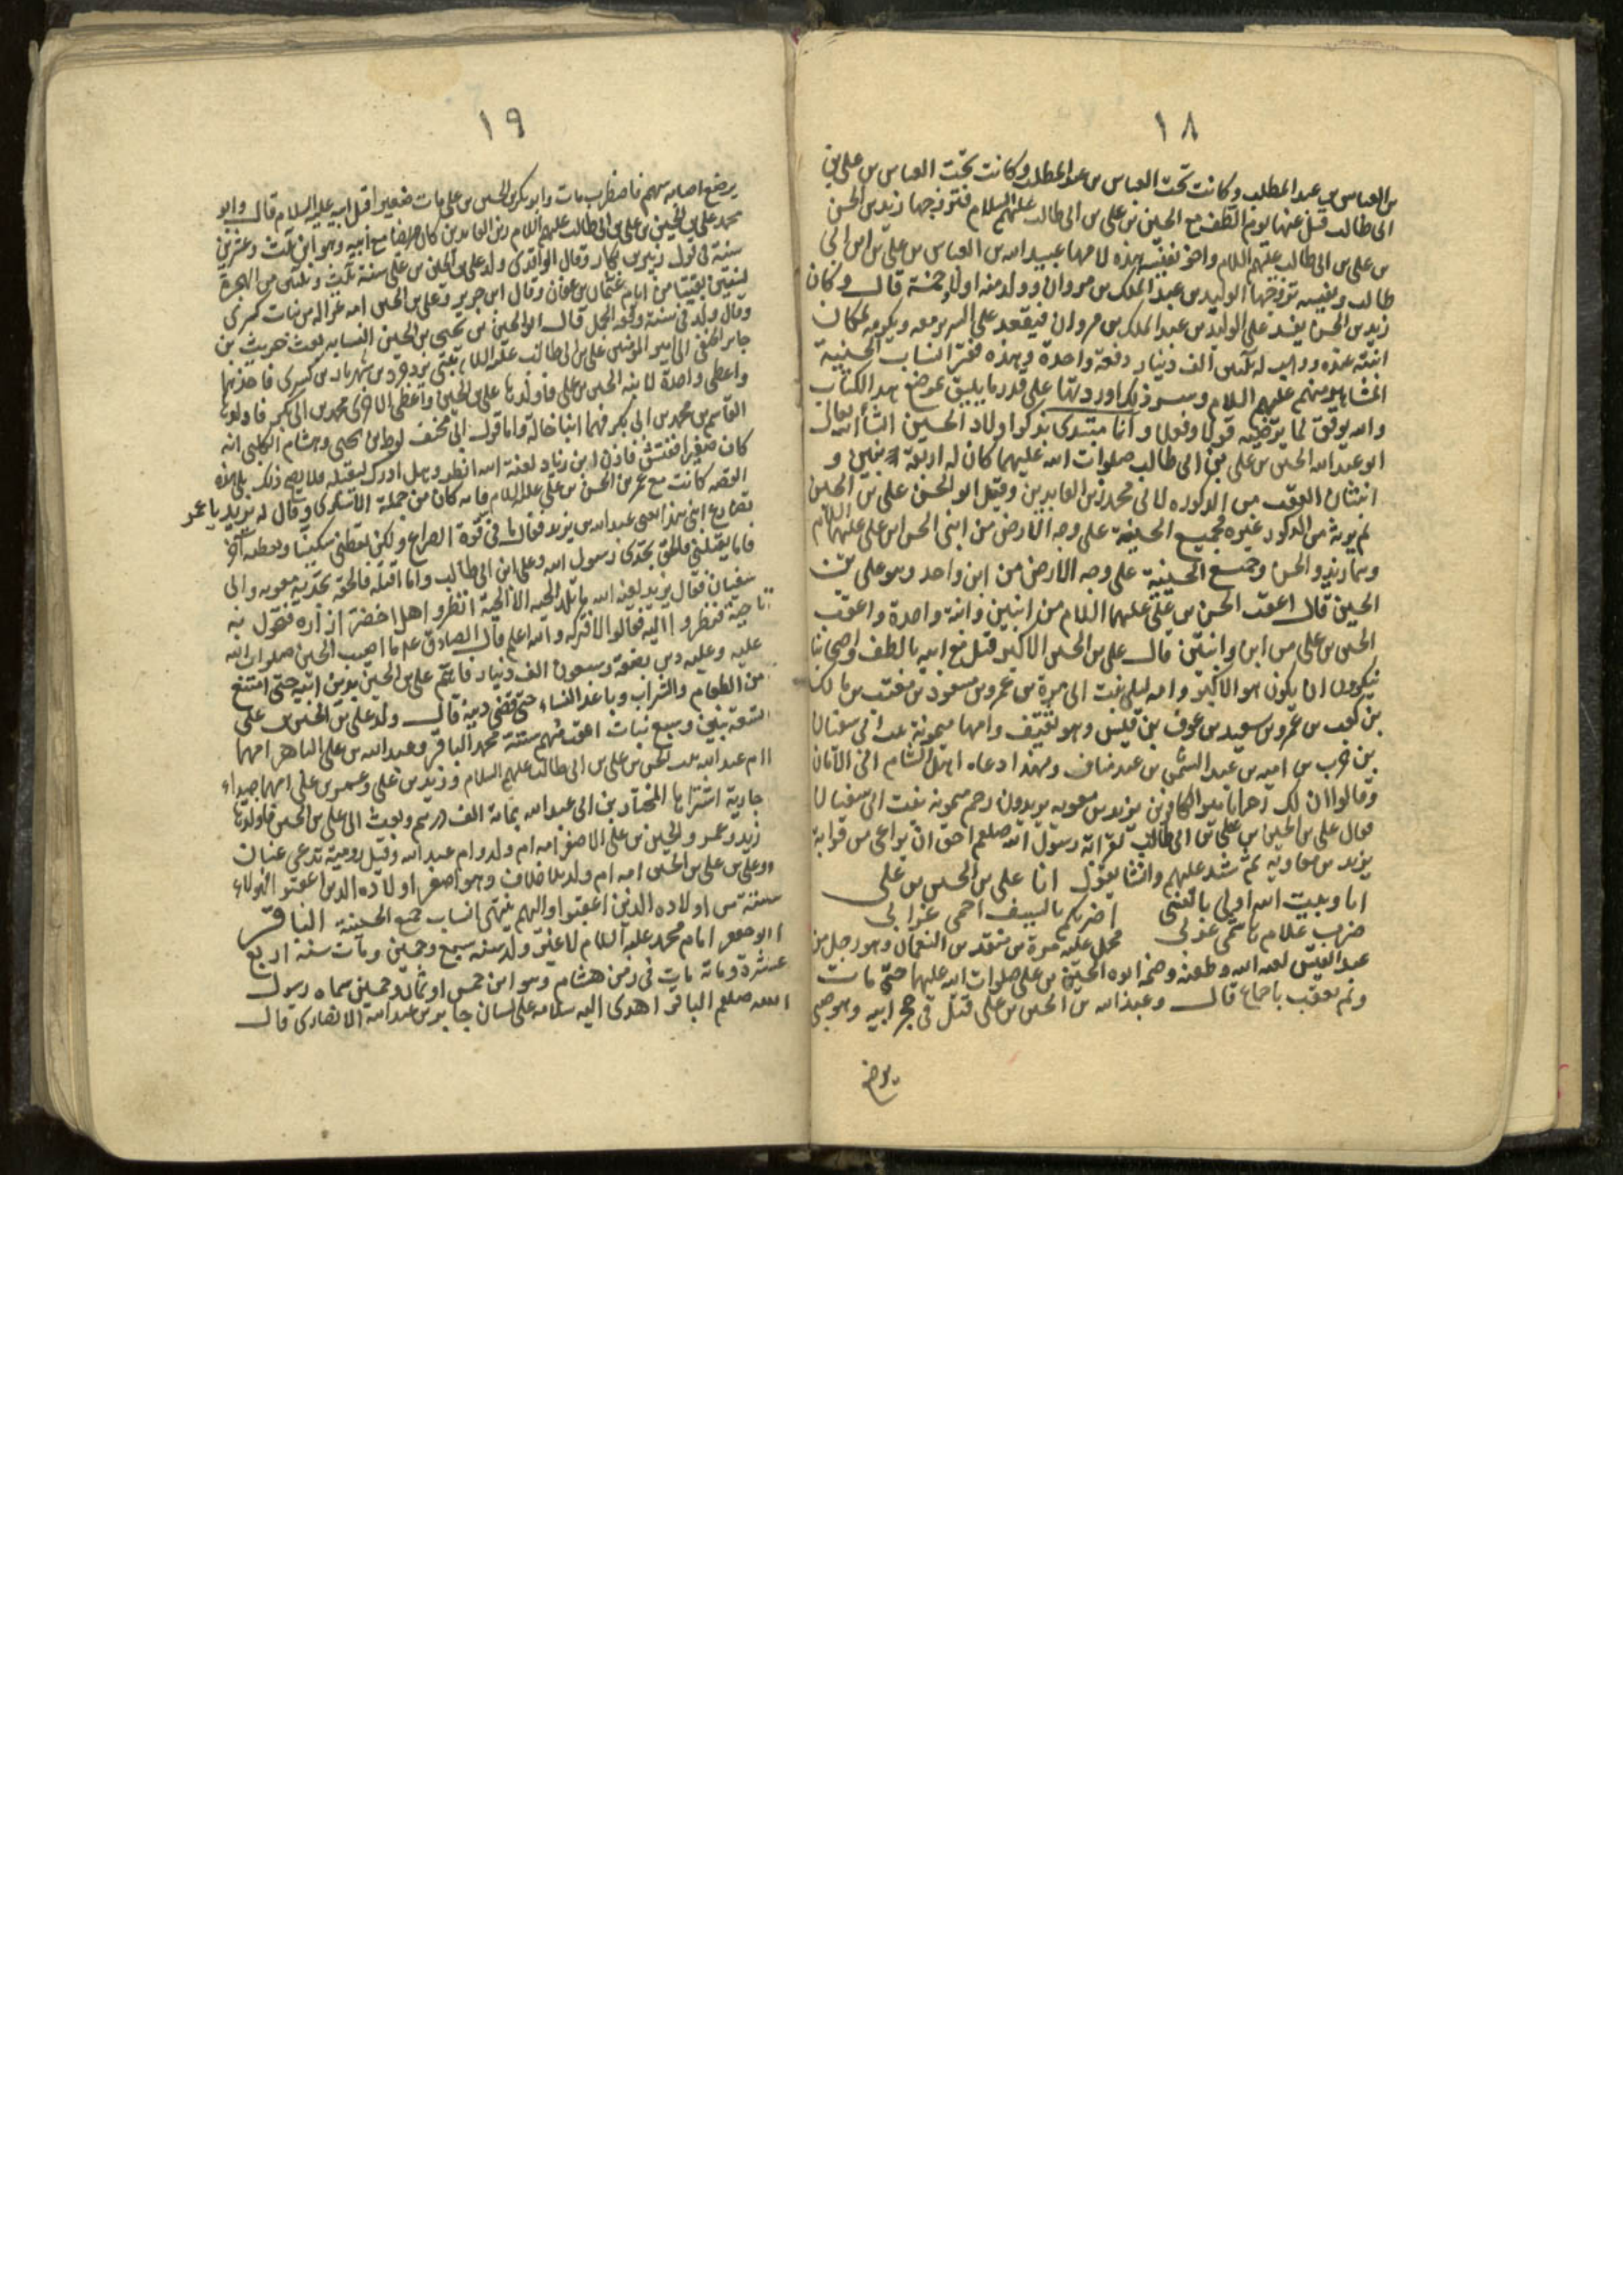 ١٨
بن العباس بن عبد المطلب وكانت تحت العباس بن عبد المطلب وكانت تحت العباس بن علي بن
ابي طالب قتل عنها يوم الطف مع الحسين بن علي بن ابي طالب عليهم السلام فتزوجها زيد بن الحسن
بن علي بن ابي طالب عليهم السلام واخو نفيسه هذه لامها عبيد الله بن العباس بن علي بن ابي
طالب ونفيسه تزوجها الوليد بن عبد الملك بن مروان وولد منه اولاد قال وكان
زيد بن الحسن يفد على الوليد بن عبد الملك بن مروان فيقعد على السرير معه ويكرمه لمكان
ابنته عنده ووهب له ثلثين الف دينار دفعة واحدة وهذه انساب الحسنية
المشاهير منهم عليهم السلام وسرد ذلك اوردتها على قدر ما يليق بموضع هذا الكتاب
والله يوفق لما يرتضيه قولا وفعلا وانا مبتدى بذكر اولاد الحسين انشأ الله تعالى
ابو عبد الله الحسين بن علي بن ابي طالب صلوات الله عليهما كان له اربعة بنين و
ابنتان العقب من الذكوره لابي محمد زين العابدين وقيل ابو الحسن علي بن الحسين
لم يرث من الذكور غيره فجميع الحسنية على وجه الارض من ابني الحسن ابن علي عليهم السلام
وهما زيد والحسن وجميع الحسينية على وجه الارض من ابن واحد وهو علي بن
الحسين قال اعقب الحسن بن علي عليهما السلام من ابنين وابنة واحدة واعقب
الحسين بن علي من ابن وابنتين قال علي بن الحسين الاكبر قتل مع ابيه بالطف واصحابنا
ينكرون ان يكون هو الاكبر وامه ليلى بنت ابي مرة بن عمرو بن مسعود بن معتب بن مالك
بن كعب بن عمرو بن سعيد بن عوف بن قيس وهو ثقيف وامها ميمونة بنت ابي سفيان
بن حرب بن امية بن عبد الشمس بن عبد مناف ولهذا دعاه اهل الشام الى الامان
وقالوا ان لك رحما بامير الكافرين يزيد بن معويه يريدون رحم ميمونه بنت ابي سفيان
فقال علي بن الحسين بن علي بن ابي طالب لقرابة رسول الله صلعم احق ان يراعى من قرابة
يزيد بن معاويه ثم شد عليهم وانشا يقول انا علي بن الحسين بن علي
اما وبيت الله اولى بالنبي اضربكم بالسيف احمي عن ابي
ضرب غلام هاشمي علوي فحمل عليه مرة بن منقذ بن النعمان وهو رجل من
عبد القيس لعنه الله وطعنه وضمه ابوه الحسين بن علي صلوات الله عليهما حتى مات
ولم يعقب باجماع قال وعبد الله بن الحسين بن علي قتل في حجر ابيه وهو صبي
يرضع
١٩
يرضع اصابه سهم فاضطرب ومات وابو بكر بن الحسين بن علي مات صغيرا قبل ابيه عليه السلام قال وابو
محمد علي بن الحسين بن علي بن ابي طالب عليهم السلام زين العابدين كان مريضا مع ابيه وهو ابن ثلث وعشرين
سنة في قول زبير بن بكار وقال الواقدي ولد علي بن الحسين بن علي سنة ثلث وثلثين من الهجرة
لسنتين بقيتا من ايام عثمان بن عفان وقال ابن جرير وعلي بن الحسين امه غزاله من بنات كسرى
وقال ولد في سنة وقعة الجمل قال ابو الحسين بن يحيى بن الحسين النسابه بعث حريث بن
جابر الحنفي الى امير المؤمنين علي بن ابي طالب عليه السلام بنتي يزدجرد بن شهريار بن كسرى فاخذهما
واعطى واحدة لابنه الحسين بن علي فاولدها علي بن الحسين واعطى الاخرى محمد بن ابي بكر فاولدها
القاسم بن محمد بن ابي بكر فهما ابنا خالة واما قول ابي مخنف لوط بن يحيى وهشام الكلبي انه
كان صغيرا ففتش فاذن ابن زياد لعنة الله انظروا هل ادرك ليقتله فلا يصح ذلك بل هذه
القصه كانت مع عمر بن الحسن بن علي عليه السلام فانه كان من جملة الاسارى وقال له يزيد يا عمر
تصارع ابني هذا يعني عبد الله بن يزيد فقال ما في قوة الصراع ولكن اعطني سكينا واعطه اخر
فاما يقتلني فالحق بجدي رسول الله وعلي ابن ابي طالب واما اقتله فالحقه بجديه معويه وابي
سفيان فقال يزيد لعنه الله ما تلد الحيه الا الحية انظروا هل اخضر ازاره فتحول به
ناحية فنظروا اليه فقالوا لا فتركه والله اعلم قال الصادق عليه اصيب الحسين صلوات الله
عليه وعليه دين بضعة وسبعون الف دينار فاهتم علي بن الحسين بدين ابيه حتى امتنع
من الطعام والشراب وباعد النساء حتى قضى دينه قال وولد علي بن الحسين بن علي
تسعة بنين وسبع بنات اعقب منهم ستة محمد الباقر وعبد الله بن علي الباهر امهما
ام عبد الله بنت الحسن بن علي بن ابي طالب عليهم السلام وزيد بن علي وعمر بن علي امهما جيداء
جارية اشتراها المختار بن ابي عبد الله بمائة الف درهم وبعث الى علي بن الحسين فاولدها
زيد وعمر والحسين بن علي الاصغر امه ام ولد وام عبد الله وقيل رومية تدعى عنان
وعلي بن علي بن الحسين امه ام ولد بلا خلاف وهو اصغر اولاده الذين اعقبوا فهؤلاء
ستة من اولاده الذين اعقبوا واليهم ينتهي انساب جميع الحسينية الباقر
ابو جعفر امام محمد عليه السلام ولد سنة سبع وخمسين ومات سنة اربع
عشرة ومائة مات في زمن هشام وهو ابن خمس او ثمان وخمسين سماه رسول
الله صلعم الباقر اهدى اليه سلامه على لسان جابر بن عبد الله الانصاري قال